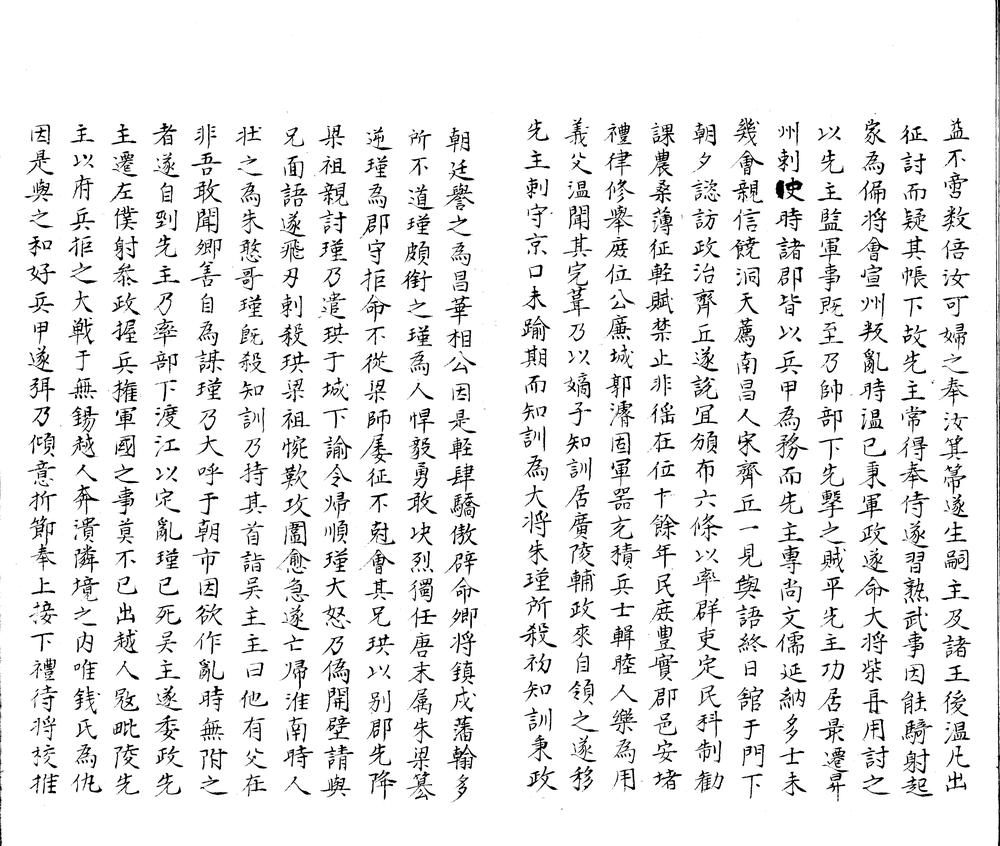 益不啻数倍汝可婦之奉汝箕箒遂生嗣主及諸王後温凡出
征討而疑其帳下故先主常得奉侍遂習熟武事因能騎射起
家為偏將會宣州叛亂時温已秉軍政遂命大將柴再用討之
以先主監軍事既至乃帥部下先擊之賊平先主功居最遷昇
州刺史時諸郡皆以兵甲為務而先主專尚文儒延納多士未
幾會親信饒洞天薦南昌人宋齊丘一見與語終日舘于門下
朝夕諮訪政治齊丘遂說宜頒布六條以率群吏定民科制勸
課農桑薄征輕賦禁止非徭在位十餘年民庶豊實郡邑安堵
禮律修舉庭位公廉城郭濬固軍器充積兵士輯睦人樂為用
義父温聞其完葺乃以嫡子知訓居廣陵輔政來自領之遂移
先主刺守京口未踰期而知訓為大将朱瑾所殺初知訓秉政
朝廷譽之為昌華相公因是輕肆驕傲辟命卿將鎮戍藩翰多
所不道瑾頗銜之瑾為人悍毅勇敢決烈獨任唐末属朱梁簒
逆瑾為郡守拒命不從梁師屡征不尅會其兄珙以别郡先降
梁祖親討瑾乃遣珙于城下諭令帰順瑾大怒乃偽開壁請與
兄面語遂飛刃刺殺珙梁祖惋歎攻圍愈急遂亡帰淮南時人
壮之為朱憨哥瑾既殺知訓乃持其首詣吴主主曰他有父在
非吾敢聞卿善自為謀瑾乃大呼于朝市因欲作亂時無附之
者遂自刭先主乃率部下渡江以定亂瑾已死吴主遂委政先
主遷左僕射叅政握兵權軍國之事莫不已出越人寇毗陵先
主以府兵拒之大戦于無錫越人奔潰隣境之内唯銭氏為仇
因是與之和好兵甲遂弭乃傾意折節奉上接下禮待将校推